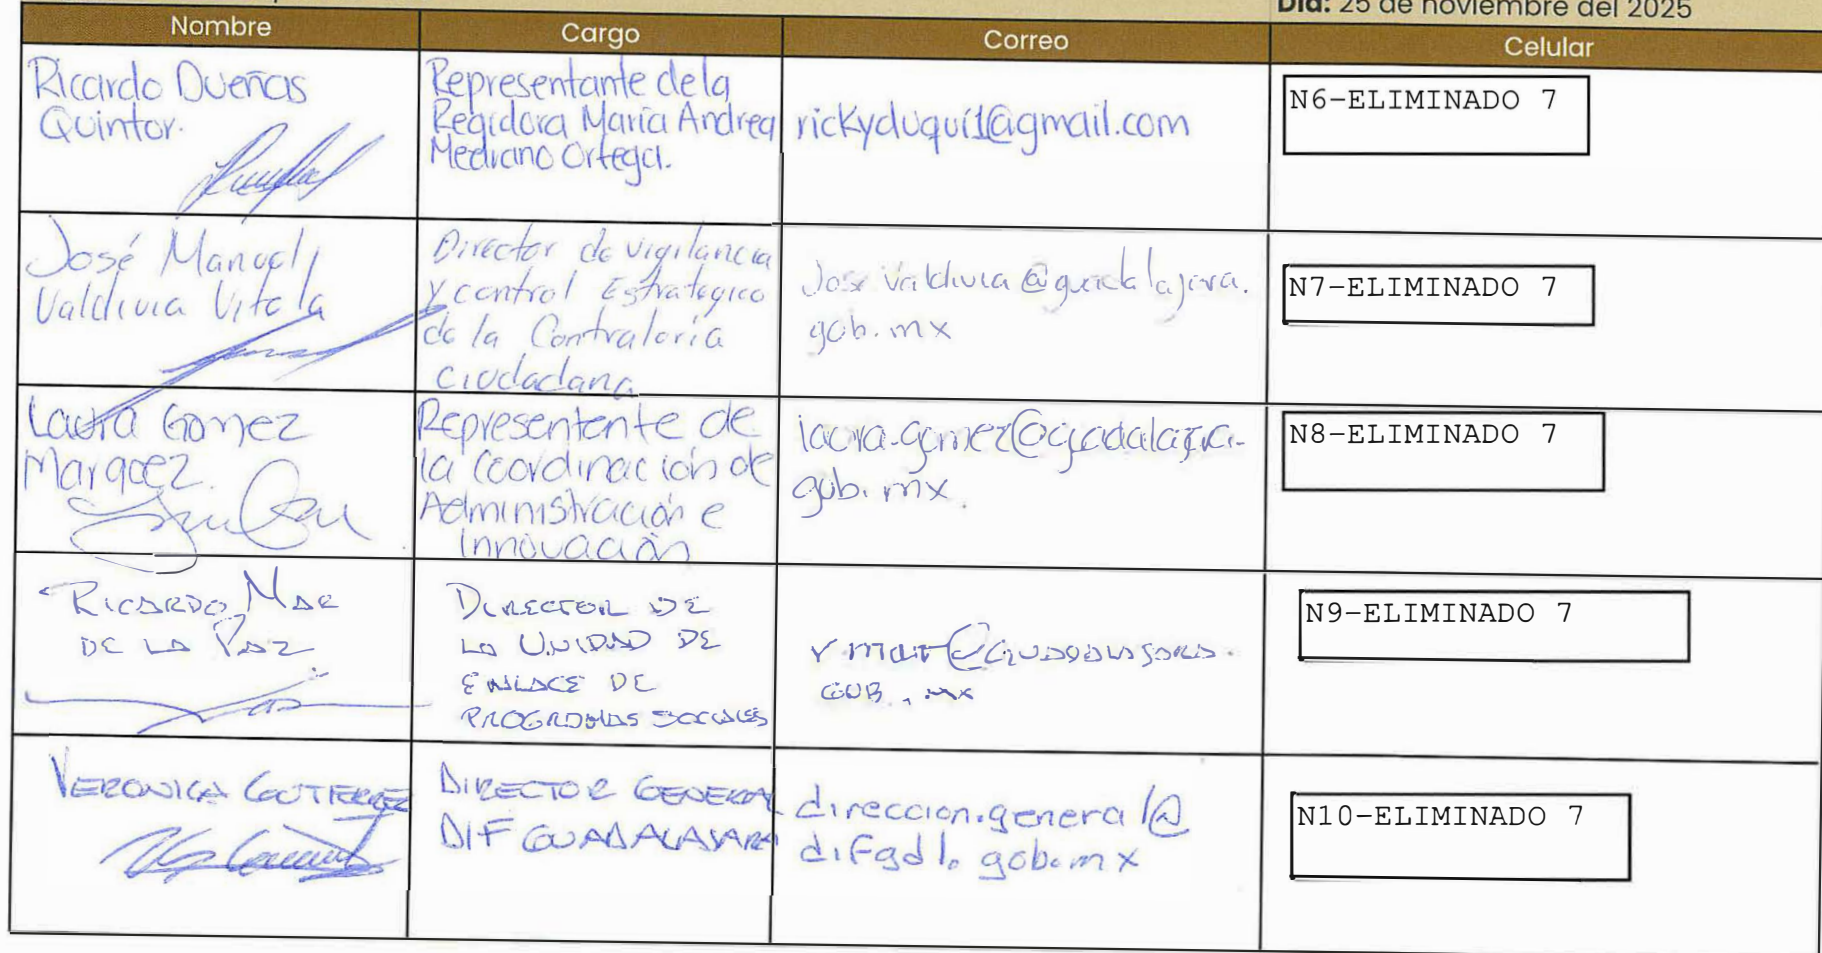 Día: 25 de noviembre del 2025
Nombre Cargo Correo Celular
Ricardo Dueñas
Quintor.
Representante de la
Regidora María Andrea
Medrano Ortega.
rickyduqui1@gmail.com
N6-ELIMINADO 7
José Manuel
Valdivia Vitela
Director de vigilancia
y control Estrategico
de la Contraloría
ciudadana
Jose Valdivia@guadalajara.
gob.mx
N7-ELIMINADO 7
Laura Gomez
Marquez.
Representente de
la Coordinación de
Administración e
Innovación
laura.gomez@guadalajara.
gob.mx.
N8-ELIMINADO 7
RICARDO MAR
DE LA PAZ
DIRECTOR DE
LA UNIDAD DE
ENLACE DE
PROGRAMAS SOCIALES
rmar@GUADALAJARA.
GOB.mx
N9-ELIMINADO 7
VERONICA GUTIERREZ
DIRECTOR GENERAL
DIF GUADALAJARA
direccion.general@
difgdl.gob.mx
N10-ELIMINADO 7